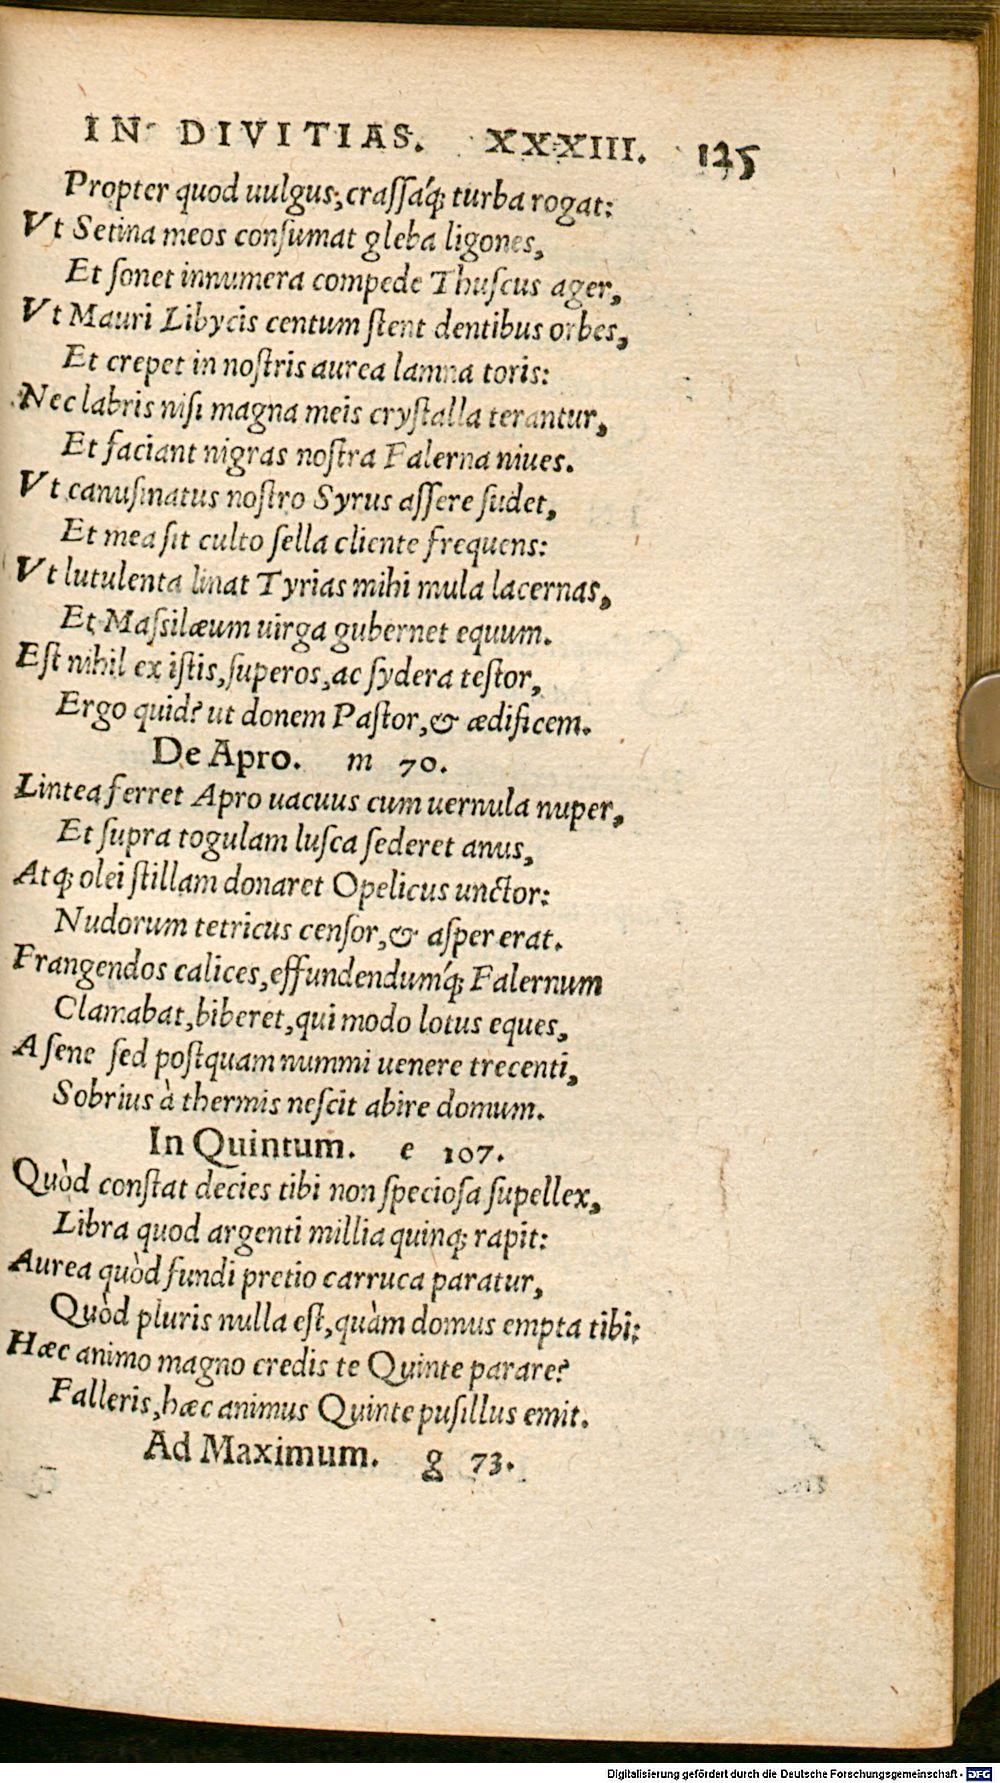 IN DIVITIAS. XXXIII. 125
Propter quod uulgus, crassaq́; turba rogat:
Vt Setina meos consumat gleba ligones,
Et sonet innumera compede Thuscus ager,
Vt Mauri Libycis centum stent dentibus orbes,
Et crepet in nostris aurea lamna toris:
Nec labris nisi magna meis crystalla terantur,
Et faciant nigras nostra Falerna niues.
Vt canusinatus nostro Syrus assere sudet,
Et mea sit culto sella cliente frequens:
Vt lutulenta linat Tyrias mihi mula lacernas,
Et Massilæum uirga gubernet equum.
Est nihil ex istis, superos, ac sydera testor,
Ergo quid? ut donem Pastor, & ædificem.
De Apro. m 70.
Lintea ferret Apro uacuus cum uernula nuper,
Et supra togulam lusca sederet anus,
Atq; olei stillam donaret Opelicus unctor:
Nudorum tetricus censor, & asper erat.
Frangendos calices, effundendumq́; Falernum
Clamabat, biberet, qui modo lotus eques,
A sene sed postquam nummi uenere trecenti,
Sobrius à thermis nescit abire domum.
In Quintum. e 107.
Quòd constat decies tibi non speciosa supellex,
Libra quod argenti millia quinq; rapit:
Aurea quòd fundi pretio carruca paratur,
Quòd pluris nulla est, quàm domus empta tibi:
Hæc animo magno credis te Quinte parare?
Falleris, hæc animus Quinte pusillus emit.
Ad Maximum. g 73.
Digitalisierung gefördert durch die Deutsche Forschungsgemeinschaft - DFG